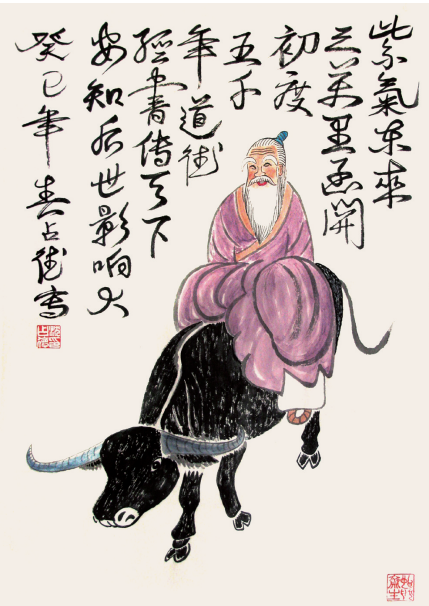 紫氣東來
三萬里函開
初度
五千
年道德
經書傳天下
安知后世影响大
癸巳年占德写